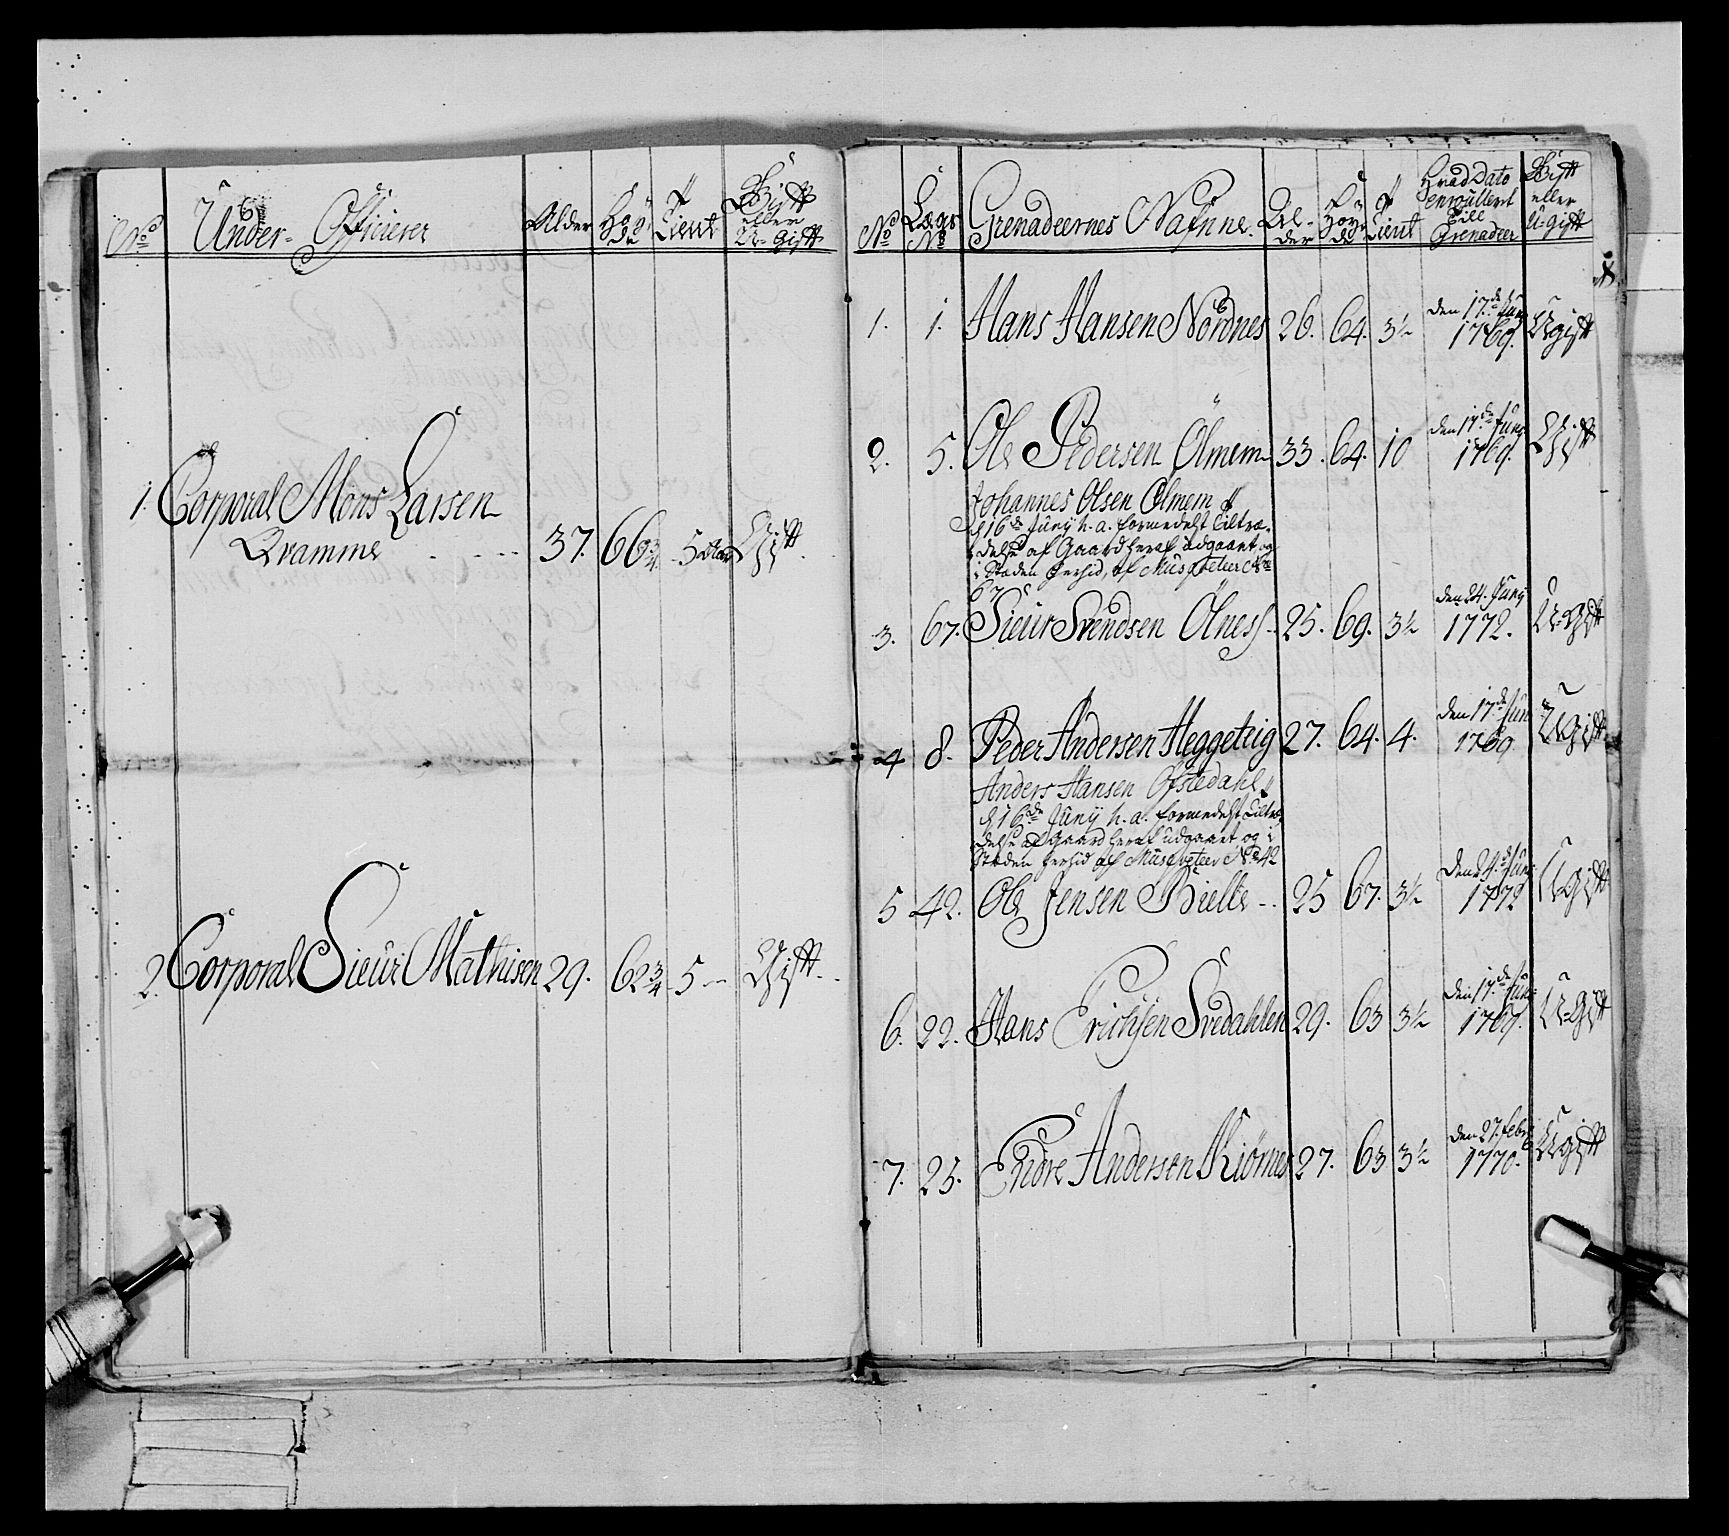 No
Under-Officierer
Alder
Høyde
Tient
Gift eller U-Gift
1. Corporal Mons Larsen
Qvamme 37. 66 3/4 5 Gift
2. Corporal Siur Mathisen 29. 62 3/4 5 Gift
No
Lægs No
Grenadeernes Nafne.
Alder
Høyde
Tient
Hvad Dato enroullert till Grenadeer
Gift eller U-gift
1. 1. Hans Hansen Nordnes 26. 64. 3½ den 17de Juny 1769. Ugift
2. 5. Ole Pedersen Ølmem 33. 64. 10 den 17de Juny 1769. Gift
Johannes Olsen Ølmem
d 16de Juny h. a. formedelst Tiltræ-
delse af Gaard heraf udgaaet og
i Steden herhid, af Musqveteer No
67
3. 67. Siur Svendsen Ølness 25. 69. 3½ den 24. Juny 1772. U-Gift
4 8. Peder Andersen Heggetvig 27. 64. 4. den 17de Juny 1769 UGift
Anders Hansen Ofstedahl
d 16de Juny h. a. formedelst Tiltræ-
delse af Gaard heraf udgaaet og i
Steden herhid af Musqveteer No 42
5 42. Ole Jensen Bielle 25 67. 3½ den 24. Juny 1772 U-Gift
6. 22. Hans Erichsen Svedahlen 29. 63 3½ den 17de Juny 1769. U-Gift
7. 25. Endre Andersen Kiørnes 27. 63 3½ den 27. Febr: 1770. Ugift